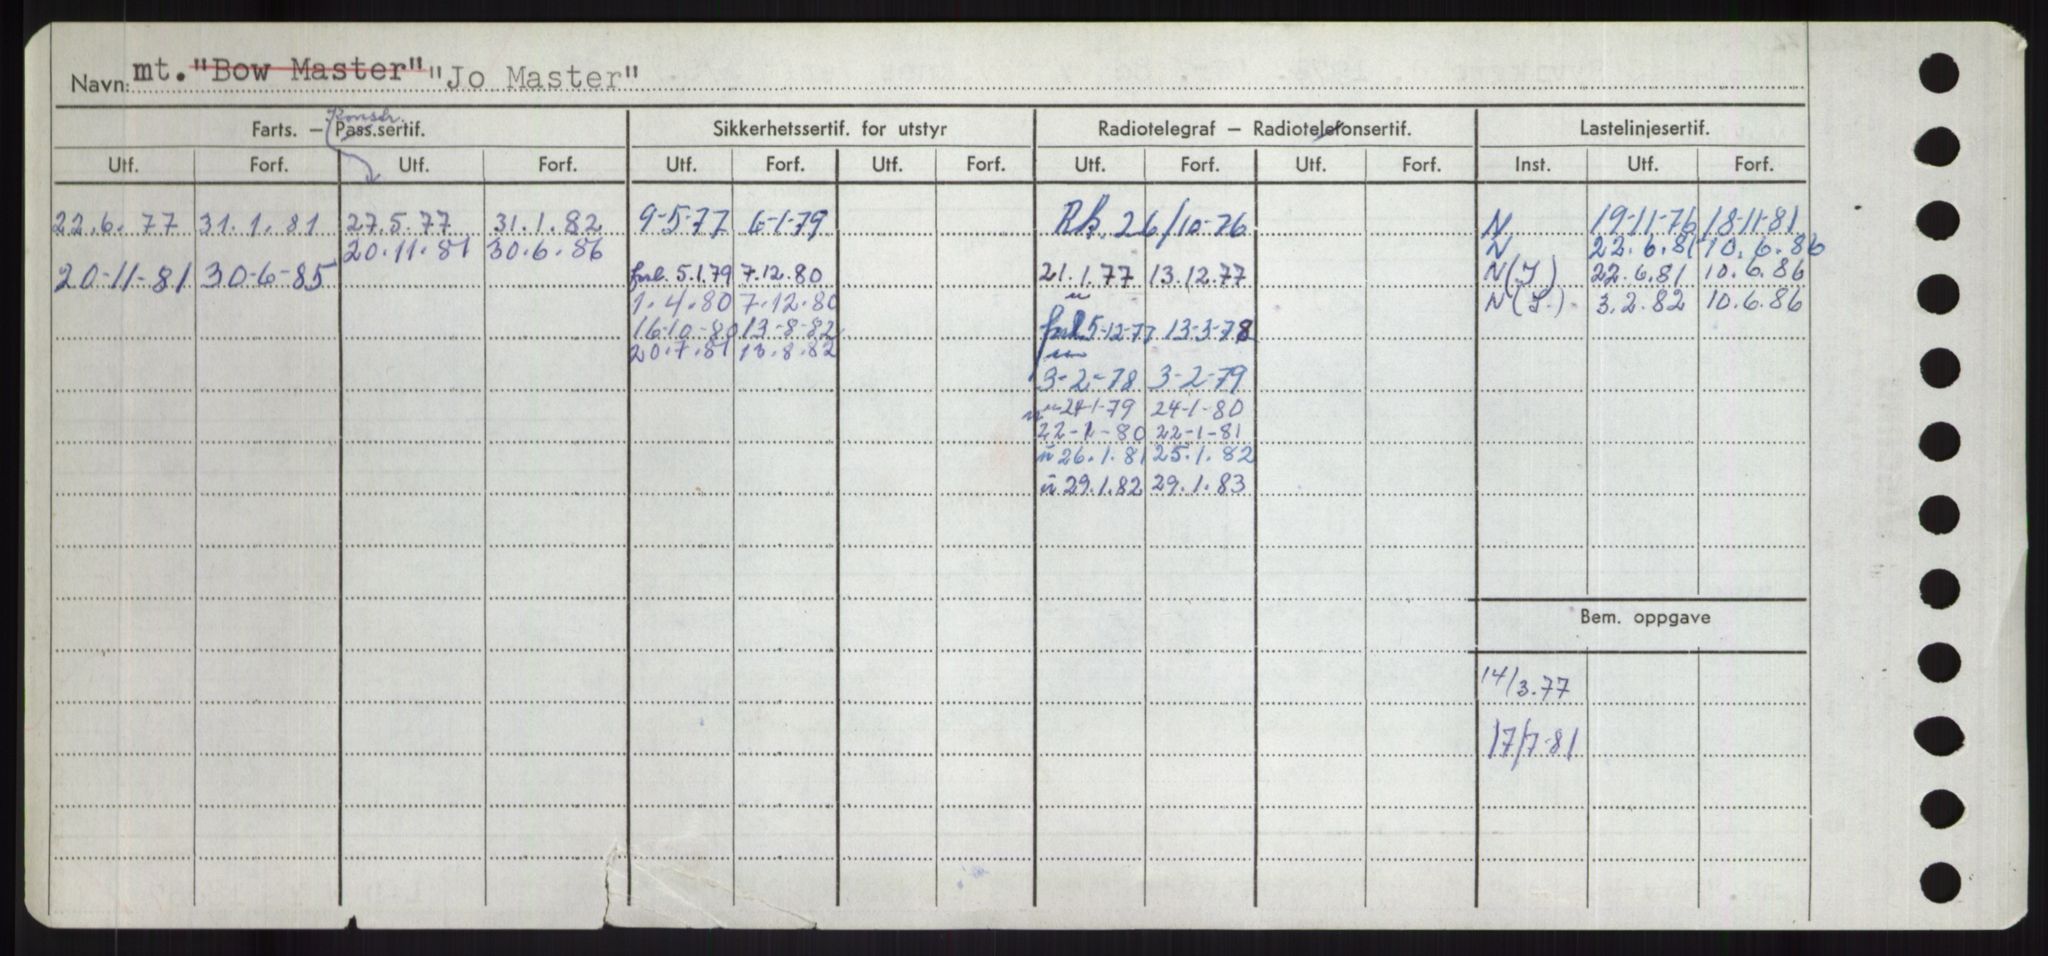 Navn: mt. "Bow Master" "Jo Master"
Konstr.
Farts. – Pass.sertif. Sikkerhetssertif. for utstyr Radiotelegraf – Radiotelefonsertif. Lastelinjesertif.
Utf. Forf. Utf. Forf. Utf. Forf. Utf. Forf. Utf. Forf. Utf. Forf. Inst. Utf. Forf.
22.6.77 31.1.81 27.5.77 31.1.82 9-5-77 6-1-79 Rk. 26/10-76 N 19-11-76 18-11-81
20.11.81 30.6.86 N 22.6.81 10.6.86
20-11-81 30-6-85 forl. 5.1.79 7.12.80 21.1.77 13.12.77 N(I) 22.6.81 10.6.86
1.4.80 7.12.80 N(I.) 3.2.82 10.6.86
16-10-80 13-8-82 forl 5-12-77 13-3-78
20.7.81 13.8.82
3-2-78 3-2-79
24-1-79 24-1-80
22-1-80 22-1-81
26.1.81 25.1.82
29.1.82 29.1.83
Bem. oppgave
14/3.77
17/7-81